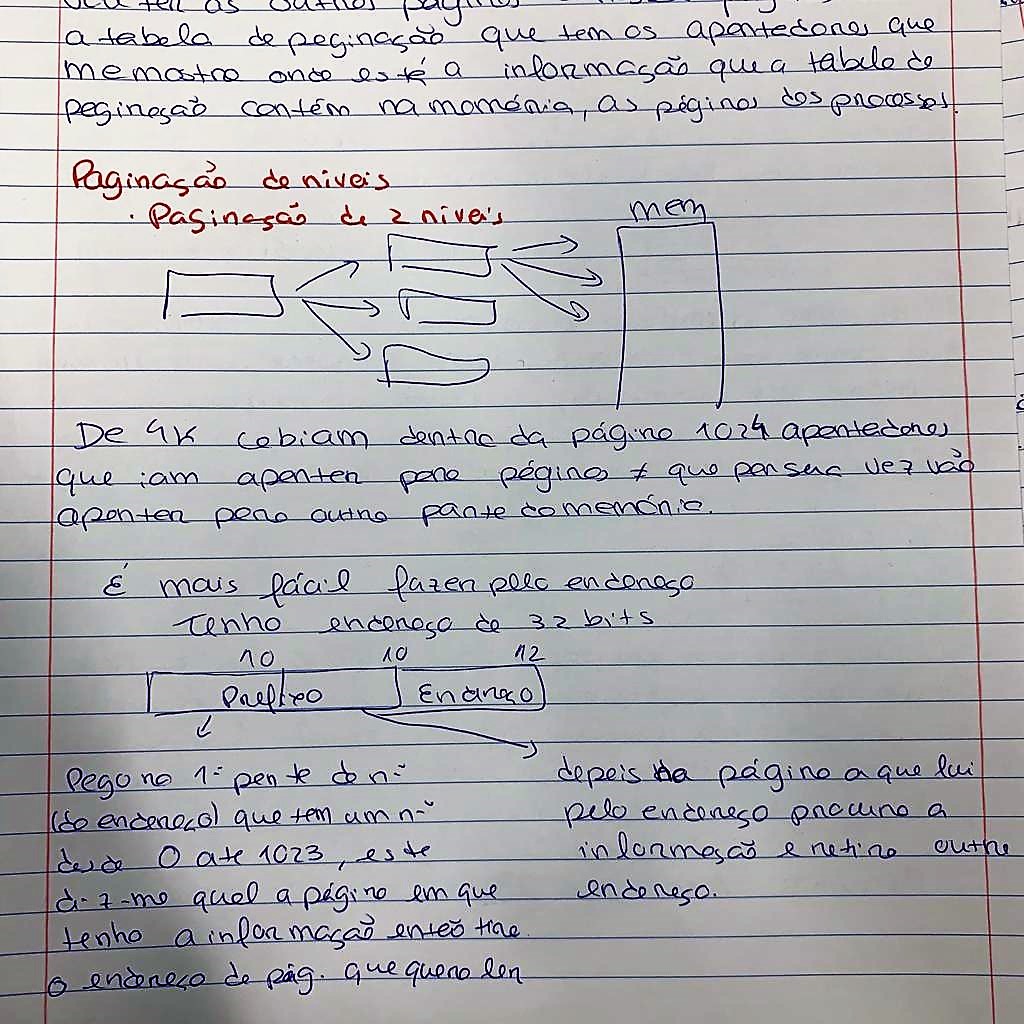 a tabela de paginação que tem os apontadores que
me mostra onde está a informação que a tabela de
paginação contém na memória, as páginas dos processos.
Paginação de niveis
· Paginação de 2 níveis
mem
De 4K cabiam dentro da página 1024 apontadores
que iam apontar para páginas ≠ que por sua vez vão
apontar para outra parte da memória.
É mais fácil fazer pelo endereço
Tenho endereço de 32 bits
10 10 12
Prefixo Endereço
Pego na 1ª parte do nº
(do endereço) que tem um nº
desde 0 ate 1023, este
diz-me qual a página em que
tenho a informação então tiro
o endereço de pág. que quero ler
depois na página a que fui
pelo endereço procuro a
informação e retiro outro
endereço.